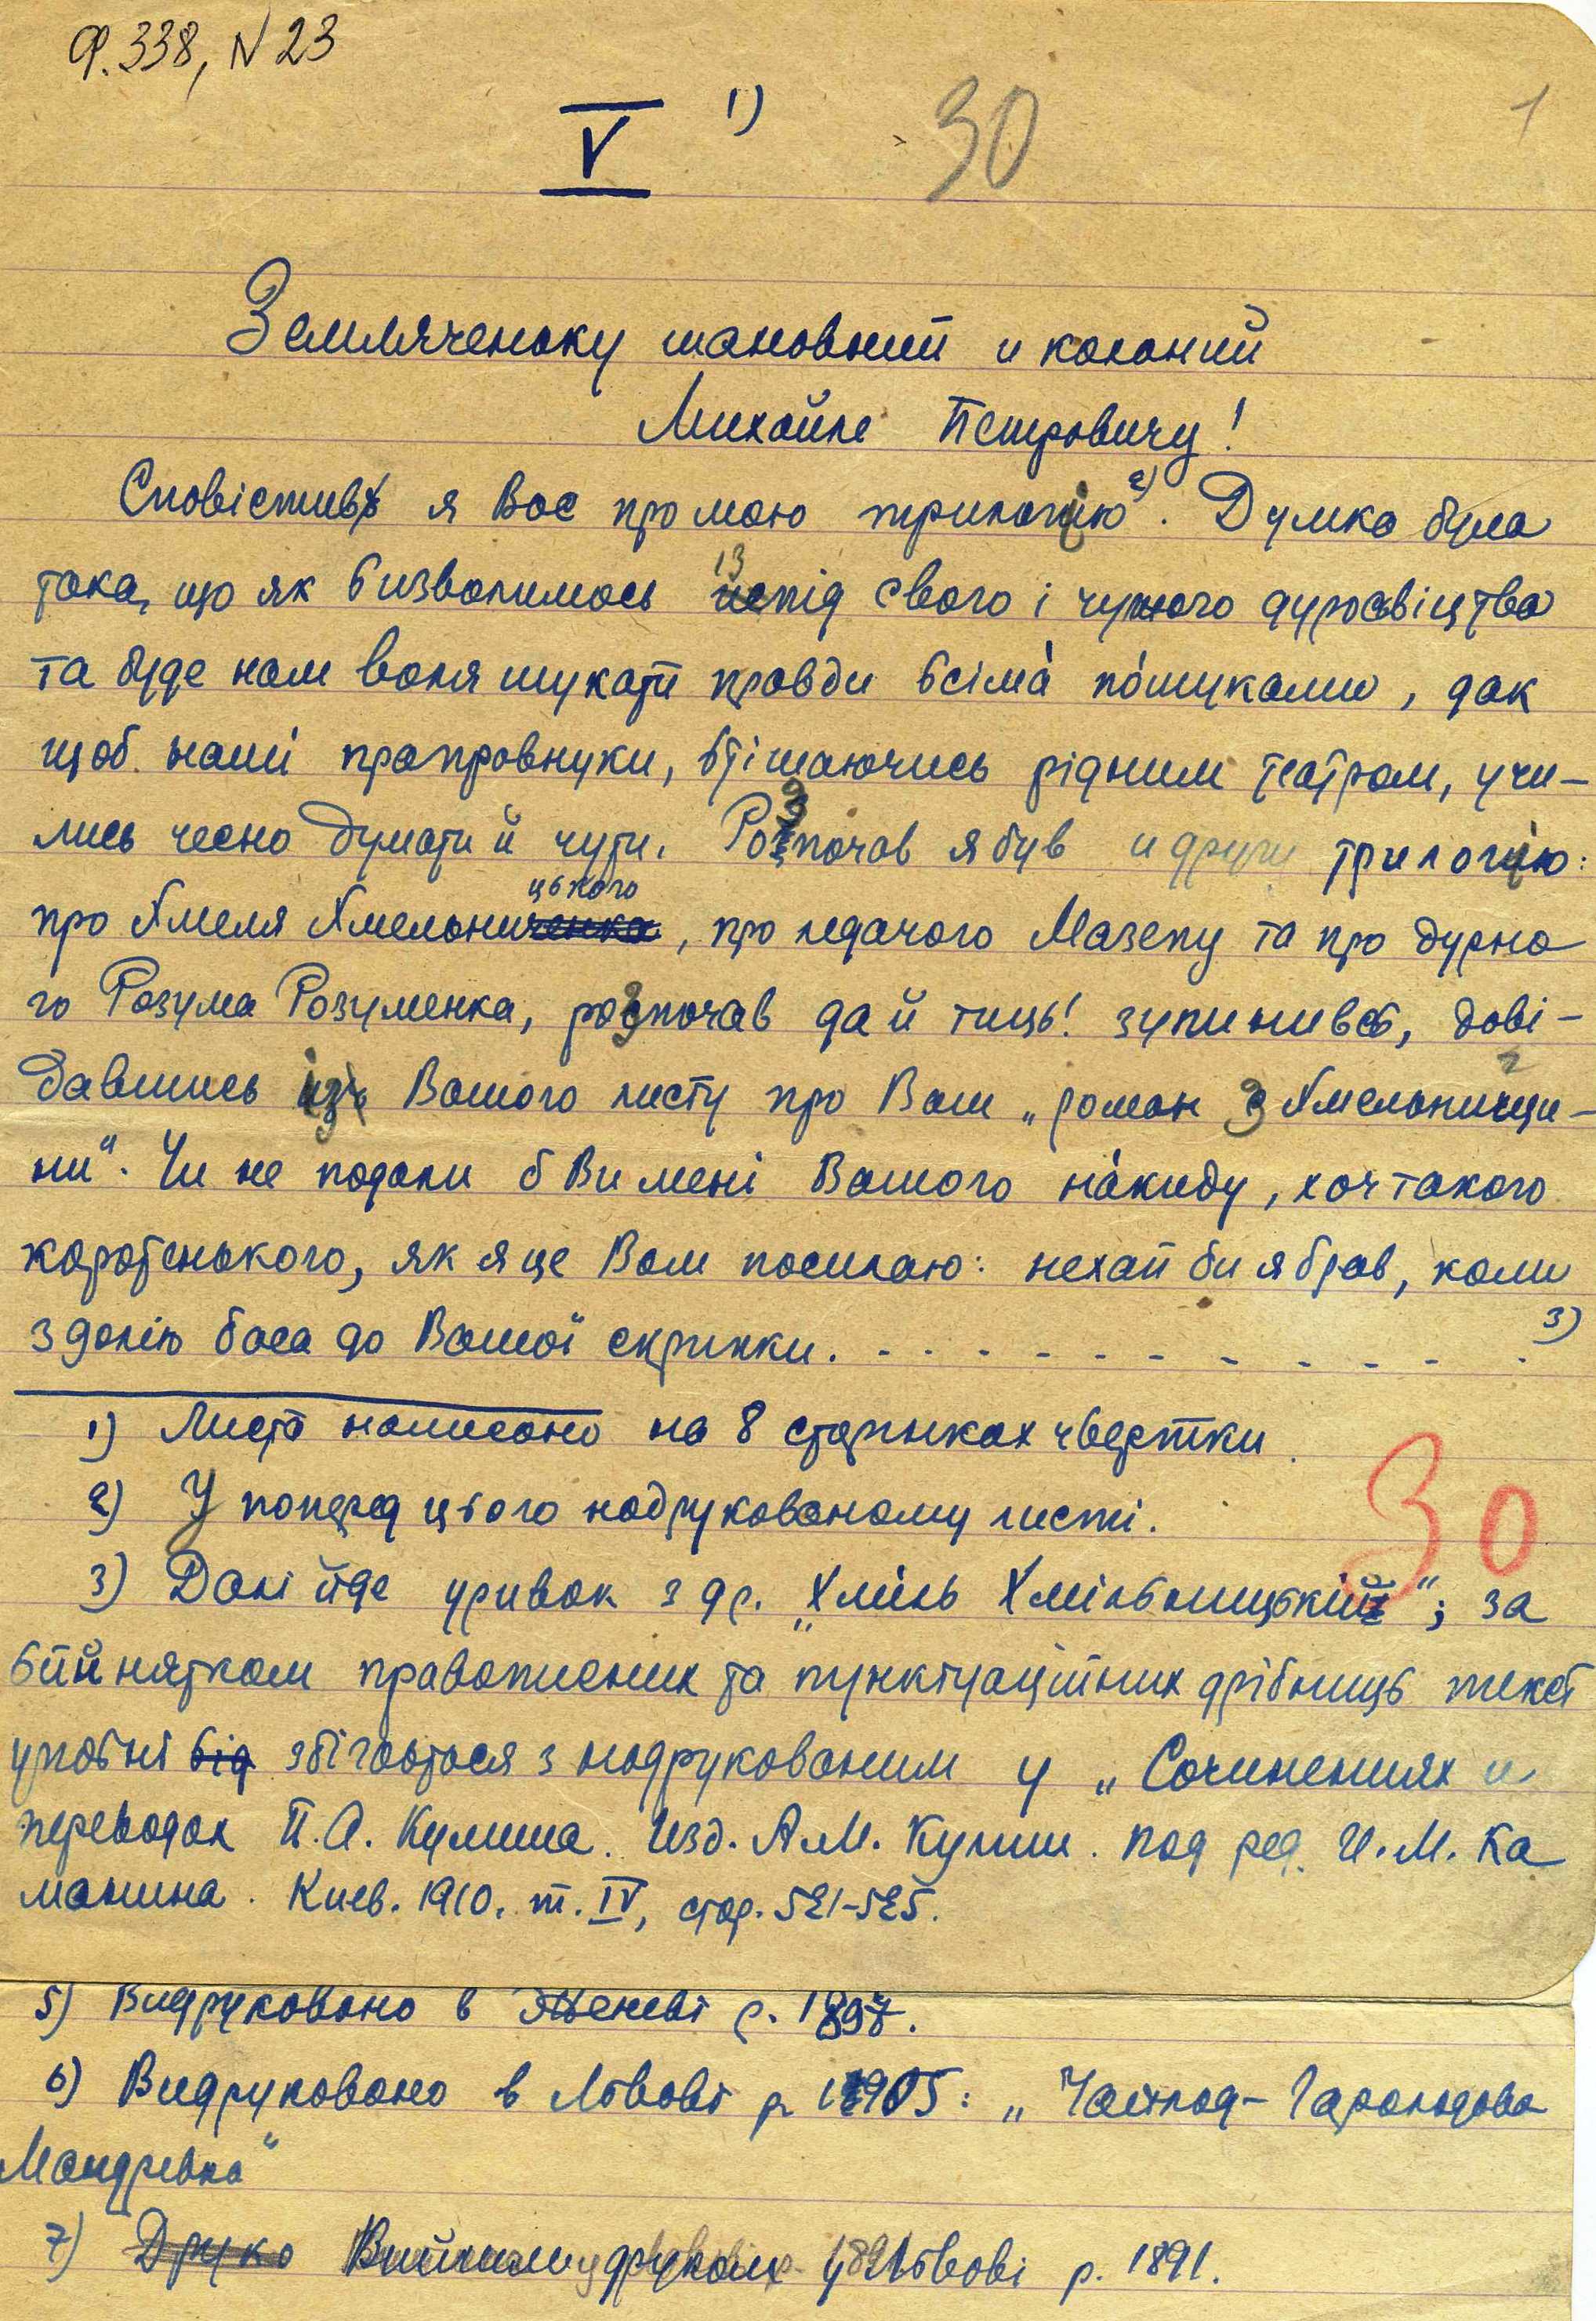 Ф. 338, N 23
V 1) 30 1
Земляченьку шановний и коханий
Михайле Петровичу!
Сповістивъ я Вас про мою трилогію 2). Думка була
така, що як визволимось із під свого і чужого дуросвіцтва
та буде нам воля шукати правди всіма́ по́шуками, дак
щоб наші прапровнуки, втішаючись рідним театром, учи-
лись чесно думати й чути. Розпочав я був и другу трилогію:
про Хмеля Хмельницького, про ледачого Мазепу та про дурно
го Розума Розуменка, розпочав да й тиць! зупинивсь, дові-
давшись із Вашого листу про Ваш „роман з Хмельнищи-
ни". Чи не подали б Ви мені Вашого на́киду, хоч такого
коротенького, як я це Вам посилаю: нехай би я брав, коли
здолію баса до Вашої скрипки. - - - - - - - - - - - - 3)
1) Листа написано на 8 сторінках чвертки.
2) У поперед цього надрукованому листі.
3) Далі йде уривок з др. „Хміль Хмільницький"; за
війнятком правописних та пунктуаційних дрібниць текст
уповні від збігається з надрукованим у „Сочинениях и
переводах П. А. Кулиша. Изд. А. М. Кулиш. под ред. И. М. Ка
манина. Киев. 1910. т. IV, стор. 521-525.
30
5) Видруковано в Женеві р. 1897.
6) Видруковано в Львові р. 1905: „Чайльд-Гарольдова
Мандрівка"
7) Друко Вийшли друком у Львові р. 1891.